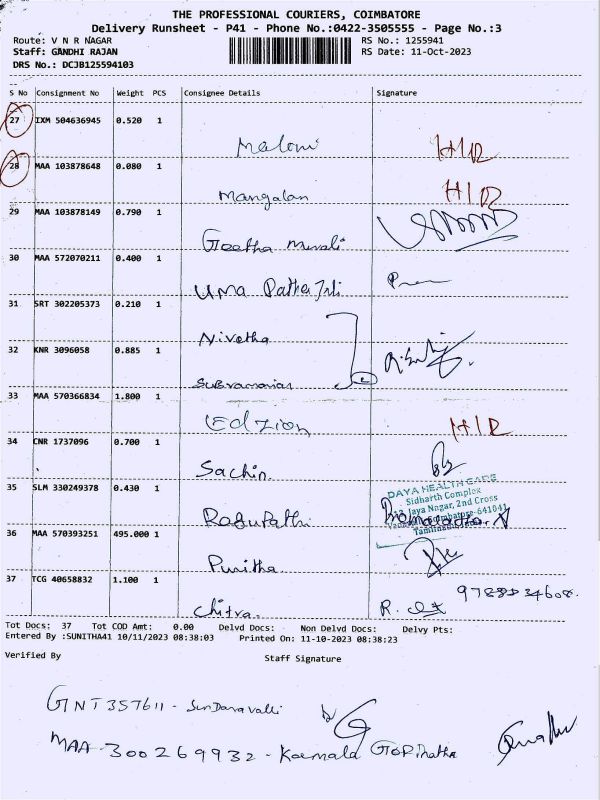 THE PROFESSIONAL COURIERS, COIMBATORE
Delivery Runsheet - P41 - Phone No.:0422-3505555 - Page No.:3
Route: V N R NAGAR
RS No.: 1255941
Staff: GANDHI RAJAN
RS Date: 11-Oct-2023
DRS No.: DCJB125594103
S No Consignment No Weight PCS Consignee Details Signature
27 IXM 504636945 0.520 1
Maloni HIR
28 MAA 103878648 0.080 1
Mangalan HIR
29 MAA 103878149 0.790 1
Geetha Murali
30 MAA 572070211 0.400 1
Uma
31 SRT 302205373 0.210 1
Nivetha
32 KNR 3096058 0.885 1
Subramanian
33 MAA 570366834 1.800 1
Edzion HIR
34 CNR 1737096 0.700 1
Sachin.
35 SLM 330249378 0.430 1
DAYA HEALTH CARE
Sidharth Complex
Jaya Nagar, 2nd Cross
Coimbatore-641041
Ragupathi
36 MAA 570393251 495.000 1
Punitha.
37 TCG 40658832 1.100 1
Chitra. R.
Tot Docs: 37 Tot COD Amt: 0.00 Delvd Docs: Non Delvd Docs: Delvy Pts:
Entered By :SUNITHA41 10/11/2023 08:38:03 Printed On: 11-10-2023 08:38:23
Verified By Staff Signature
GNT357611 - Sundaravalli
MAA 300269932 - Kamala Gopinatha